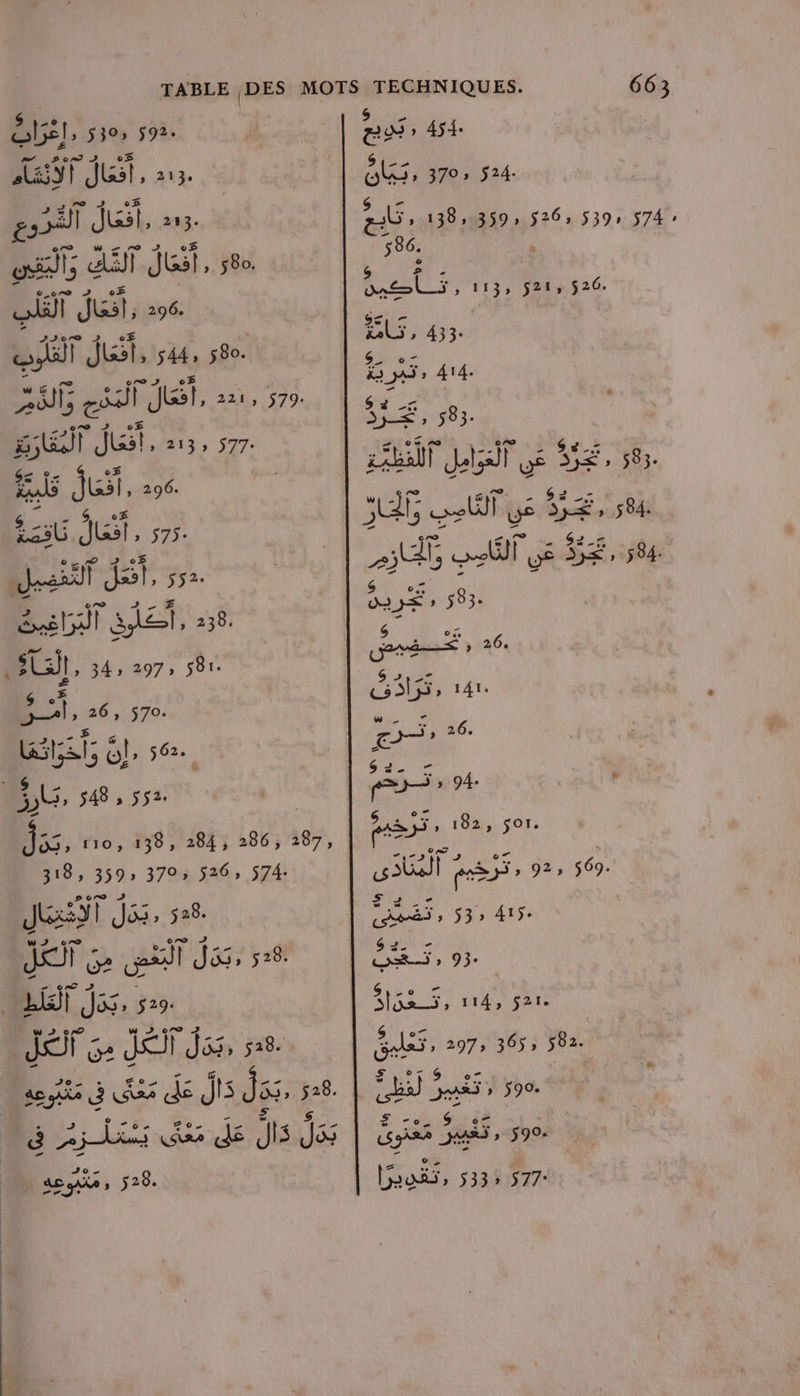 TABLE DES MOTS TECHNIQUES. 663
إِغْرَابٌ, 530, 592.
أَفْعَالُ ٱلْإِنْشَآءِ, 213.
أَفْعَالُ ٱلشُّرُوعِ, 213.
أَفْعَالُ ٱلشَّكِّ وَٱلْيَقِينِ, 580.
أَفْعَالُ ٱلْقَلْبِ, 296.
أَفْعَالُ ٱلْقُلُوبِ, 544, 580.
أَفْعَالُ ٱلْمَدْحِ وَٱلذَّمِّ, 221, 579.
أَفْعَالُ ٱلْمُقَارَبَةِ, 213, 577.
أَفْعَالٌ قَلْبِيَّةٌ, 296.
أَفْعَالٌ نَاقِصَةٌ, 575.
أَفْعَلُ ٱلتَّفْضِيلِ, 552.
أَكَلُونِى ٱلْبَرَاغِيثُ, 238.
إِلْغَآءٌ, 34, 297, 581.
أَمْرٌ, 26, 570.
إِنَّ وَأَخَوَاتُهَا, 562.
بَارِزٌ, 548, 552.
بَدَلٌ, 110, 138, 284, 286, 287,
318, 359, 370, 526, 574.
بَدَلُ ٱلْإِشْتِمَالِ, 528.
بَدَلُ ٱلْبَعْضِ مِنَ ٱلْكُلِّ, 528.
بَدَلُ ٱلْغَلَطِ, 529.
بَدَلُ ٱلْكُلِّ مِنَ ٱلْكُلِّ, 528.
بَدَلٌ دَالٌّ عَلَى مَعْنًى فِى مَتْبُوعِهِ, 528.
بَدَلٌ دَالٌّ عَلَى مَعْنًى يَسْتَلْزِمُ فِى
مَتْبُوعِهِ, 528.
بَدِيعٌ, 454.
بَيَانٌ, 370, 524.
تَابِعٌ, 138, 359, 526, 539, 574,
586.
تَأْكِيدٌ, 113, 521, 526.
تَامَّةٌ, 433.
تَبْرِيَةٌ, 414.
تَجَرُّدٌ, 583.
تَجَرُّدٌ عَنِ ٱلْعَوَامِلِ ٱللَّفْظِيَّةِ, 583.
تَجَرُّدٌ عَنِ ٱلنَّاصِبِ وَٱلْجَارِّ, 584.
تَجَرُّدٌ عَنِ ٱلنَّاصِبِ وَٱلْجَازِمِ, 584.
تَجْرِيدٌ, 583.
تَخْصِيصٌ, 26.
تَرَادُفٌ, 141.
تَرَجٍّ, 26.
تَرَحُّمٌ, 94.
تَرْخِيمٌ, 182, 501.
تَرْخِيمُ ٱلْمُنَادَى, 92, 569.
تَضَمُّنٌ, 53, 415.
تَعَجُّبٌ, 93.
تَعْدَادٌ, 114, 521.
تَعْلِيقٌ, 297, 365, 582.
تَغْيِيرٌ لَفْظِىٌّ, 590.
تَغْيِيرٌ مَعْنَوِىٌّ, 590.
تَقْدِيرًا, 533, 577.